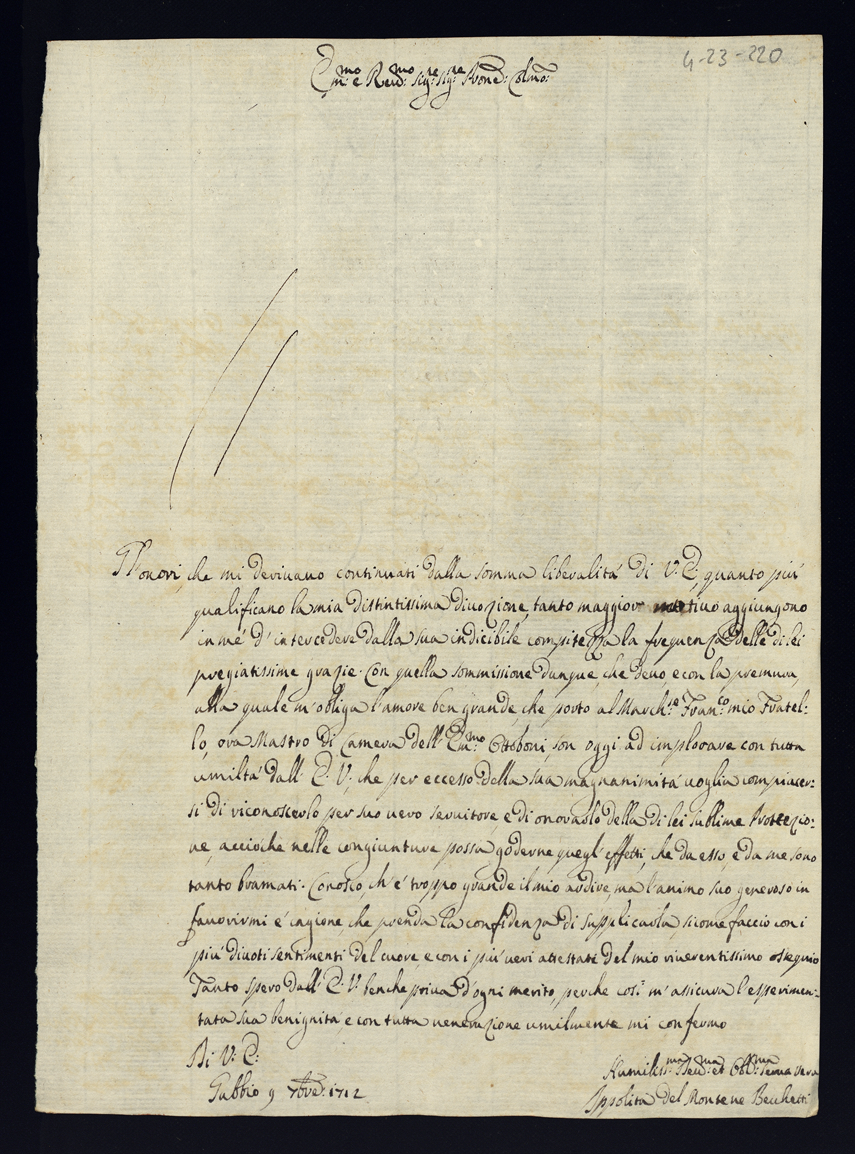 4-23-220
E.mo e Reu.mo Sig.re Sig.re Pron.e Col.mo
Gl'onori, che mi deriuano continuati dalla somma liberalità di V. E., quanto più
qualificano la mia distintissima diuozione, tanto maggior motiuo aggiungono
in mé d'intercedere dalla sua indicibile compitezza la frequenza delle di lei
pregiatissime grazie. Con quella sommissione dunque, che deuo, e con la premura,
alla quale m'obliga l'amore ben grande, che porto al March.se Fran.co mio Fratel:
lo, ora Mastro di Camera dell'E.mo Ottoboni, son oggi ad implorare con tutta
umiltà dall'E. V., che per eccesso della sua magnanimità uoglia compiacer:
si di riconoscerlo per suo uero seruitore, e di onorarlo della di lei sublime Protezio:
ne, accioche nelle congiunture possa goderne quegl'effetti, che da esso, e da me sono
tanto bramati. Conosco, ch'é troppo grande il mio ardire, ma l'animo suo generoso in
fauorirmi é cagione, che prenda la confidenza di supplicarla sicome faccio con i
più diuoti sentimenti del cuore, e con i più ueri attestati del mio riuerentissimo ossequio
Tanto spero dall'E. V. benche priua d'ogni merito, perche così m'assicura l'esperimen:
tata sua benignità e con tutta uenerazione umilmente mi confermo
Di V. E.
Humiliss.ma Deu.ma et Obl.ma Serua uera
Gubbio 9 7bre 1712
Ippolita del Monte ne Becchetti